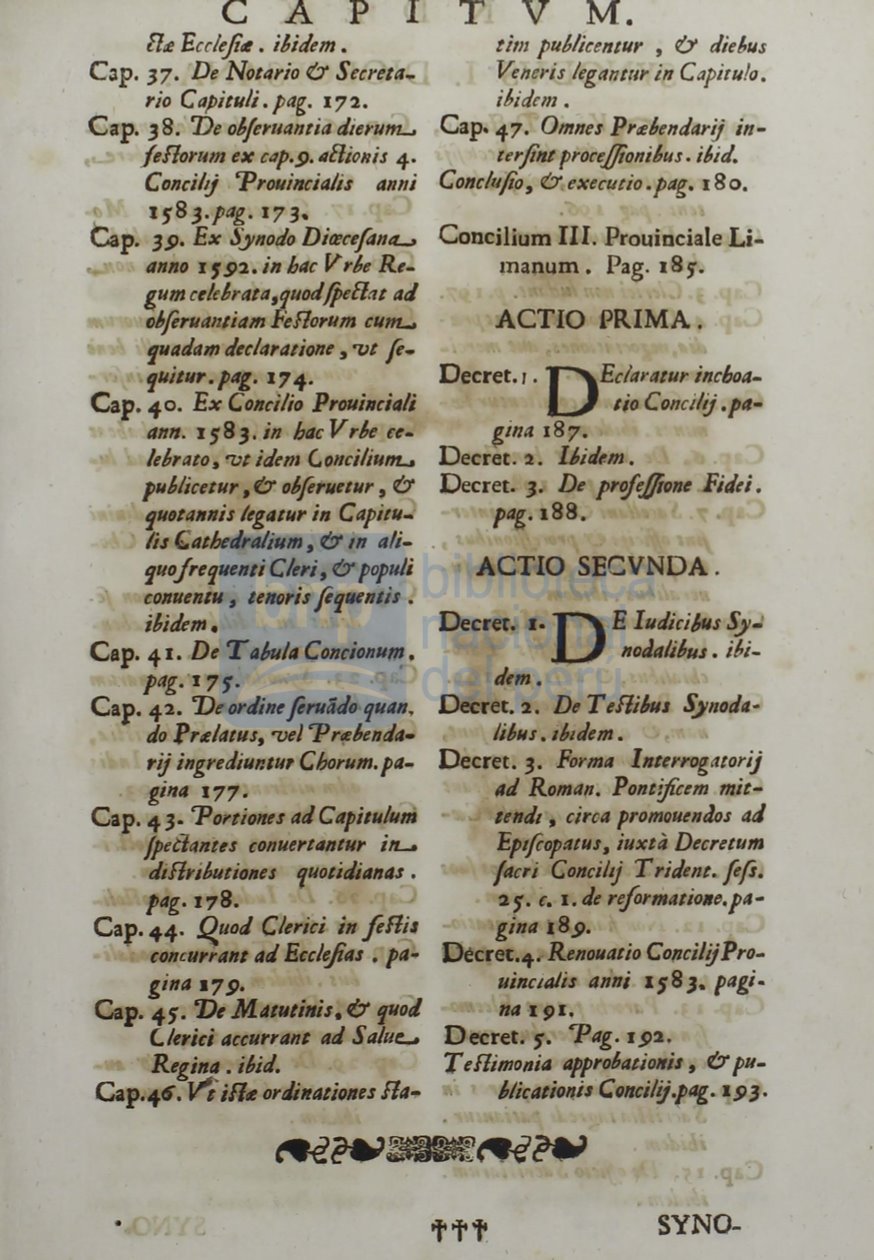 CAPITVM.
ctæ Ecclesiæ. ibidem.
Cap. 37. De Notario & Secreta-
rio Capituli. pag. 172.
Cap. 38. De obſeruantia dierum
feſtorum ex cap. 9. actionis 4.
Concilij Prouincialis anni
1583. pag. 173.
Cap. 39. Ex Synodo Diœceſana
anno 1592. in hac Vrbe Re-
gum celebrata, quod ſpectat ad
obſeruantiam Feſtorum cum
quadam declaratione, vt ſe-
quitur. pag. 174.
Cap. 40. Ex Concilio Prouinciali
ann. 1583. in hac Vrbe ce-
lebrato, vt idem Concilium
publicetur, & obſeruetur, &
quotannis legatur in Capitu-
lis Cathedralium, & in ali-
quo frequenti Cleri, & populi
conuentu, tenoris ſequentis.
ibidem.
Cap. 41. De Tabula Concionum.
pag. 175.
Cap. 42. De ordine ſeruãdo quan.
do Prælatus, vel Præbenda-
rij ingrediuntur Chorum. pa-
gina 177.
Cap. 43. Portiones ad Capitulum
ſpectantes conuertantur in
diſtributiones quotidianas.
pag. 178.
Cap. 44. Quod Clerici in feſtis
concurrant ad Eccleſias. pa-
gina 179.
Cap. 45. De Matutinis, & quod
Clerici accurrant ad Salue
Regina. ibid.
Cap. 46. Vt iſtæ ordinationes ſta-
tim publicentur, & diebus
Veneris legantur in Capitulo.
ibidem.
Cap. 47. Omnes Præbendarij in-
terſint proceſſionibus. ibid.
Concluſio, & executio. pag. 180.
Concilium III. Prouinciale Li-
manum. Pag. 185.
ACTIO PRIMA.
Decret. 1. DEclaratur inchoa-
tio Concilij. pa-
gina 187.
Decret. 2. Ibidem.
Decret. 3. De profeſſione Fidei.
pag. 188.
ACTIO SECVNDA.
Decret. 1. DE Iudicibus Sy-
nodalibus. ibi-
dem.
Decret. 2. De Teſtibus Synoda-
libus. ibidem.
Decret. 3. Forma Interrogatorij
ad Roman. Pontificem mit-
tendi, circa promouendos ad
Epiſcopatus, iuxtà Decretum
ſacri Concilij Trident. ſeſs.
25. c. 1. de reformatione. pa-
gina 189.
Decret. 4. Renouatio Concilij Pro-
uincialis anni 1583. pagi-
na 191.
Decret. 5. Pag. 192.
Teſtimonia approbationis, & pu-
blicationis Concilij. pag. 193.
††† SYNO-
biblioteca
nacional
del perú